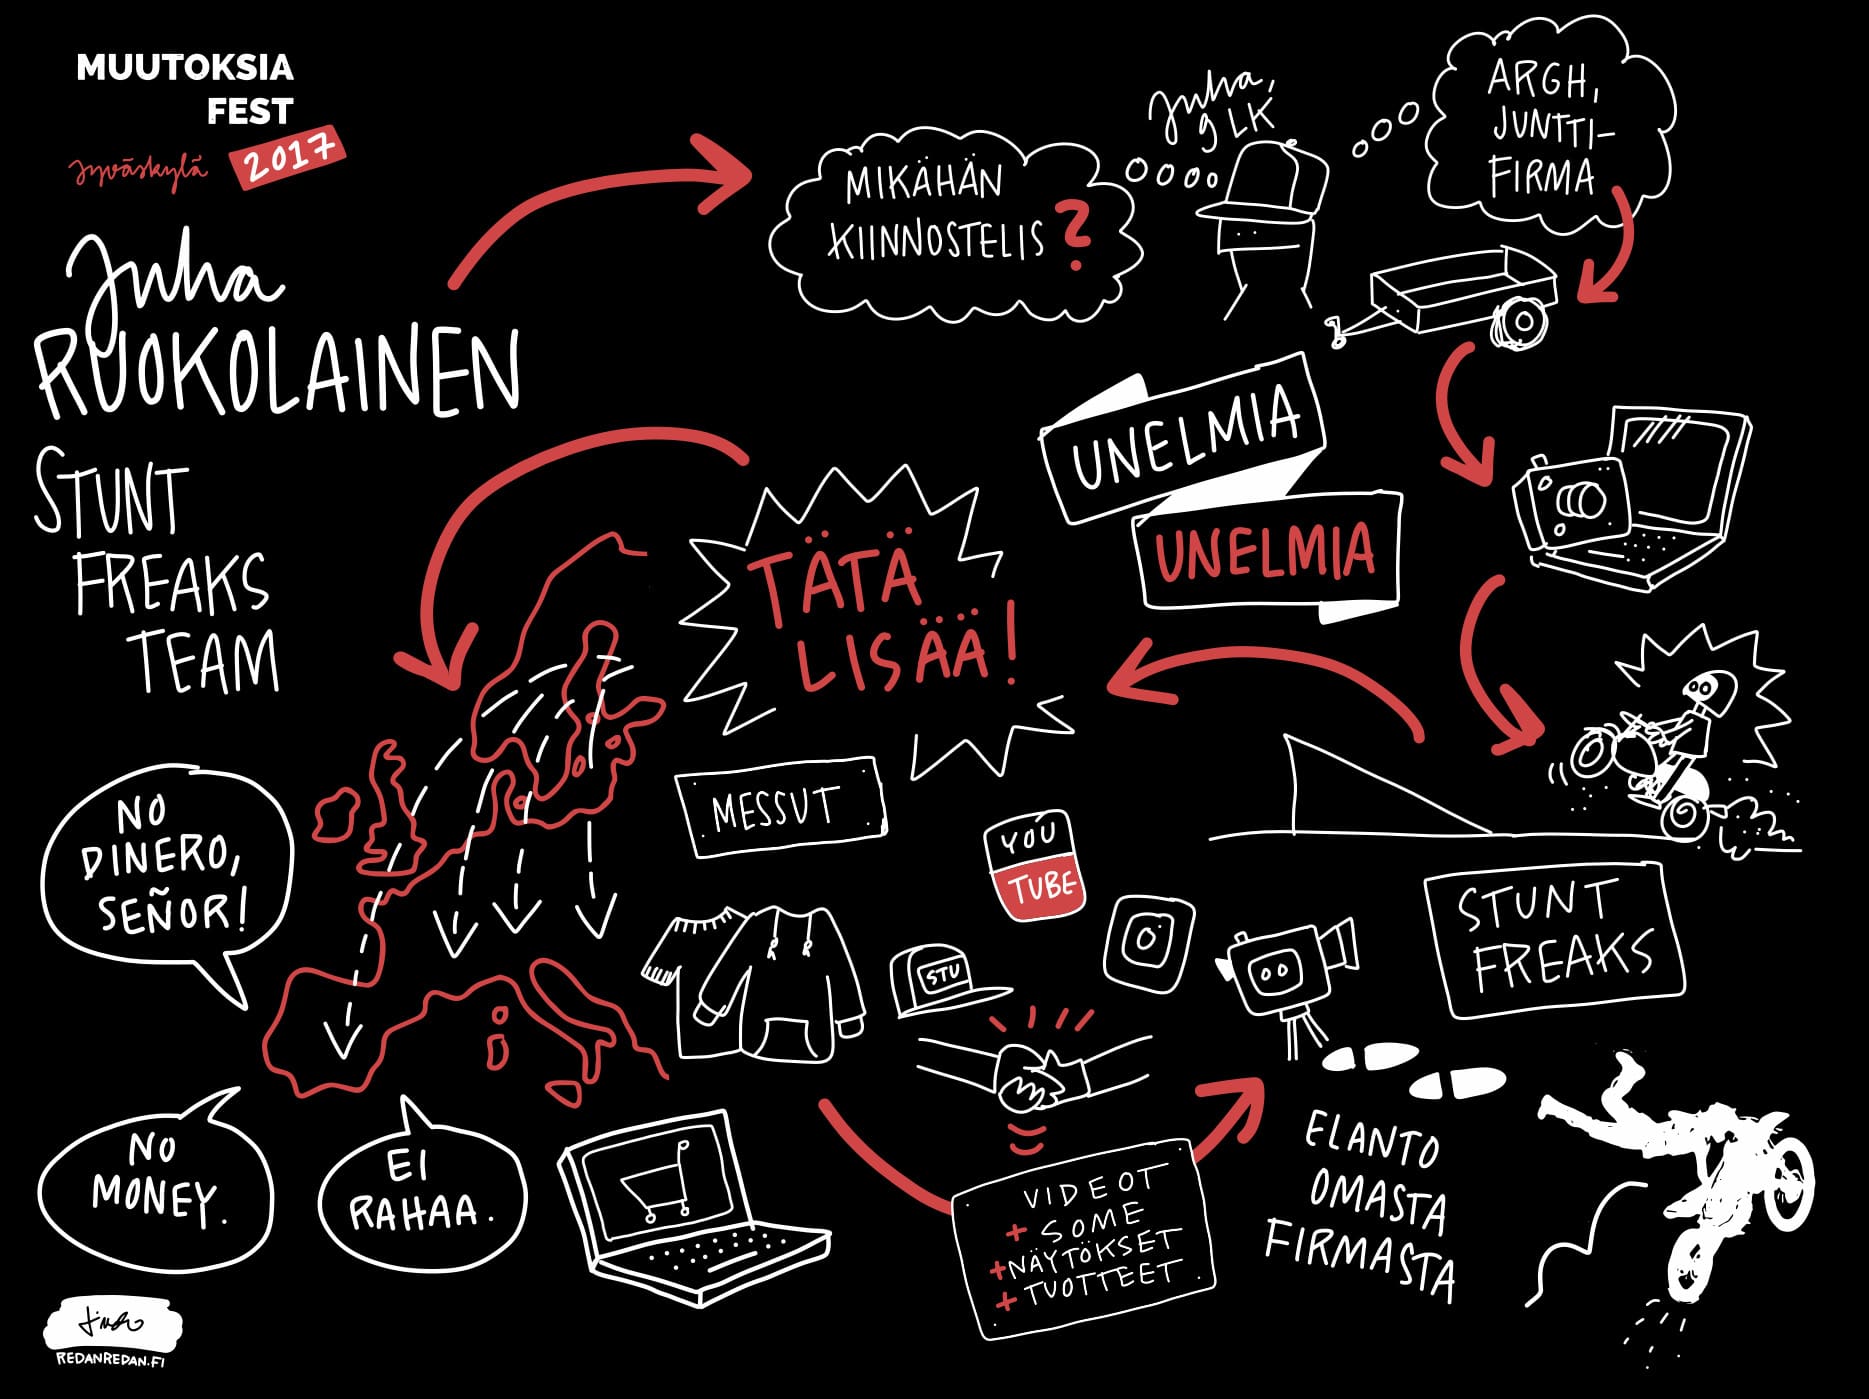 MUUTOKSIA
FEST
Jyväskylä 2017
Juha
RUOKOLAINEN
STUNT
FREAKS
TEAM
MIKÄHÄN
KIINNOSTELIS?
Juha,
9 LK
ARGH,
JUNTTI-
FIRMA
UNELMIA
UNELMIA
STUNT
FREAKS
TÄTÄ
LISÄÄ!
NO
DINERO,
SEÑOR!
NO
MONEY.
EI
RAHAA.
MESSUT
YOU
TUBE
STU
VIDEOT
+ SOME
+ NÄYTÖKSET
+ TUOTTEET
ELANTO
OMASTA
FIRMASTA
REDANREDAN.FI